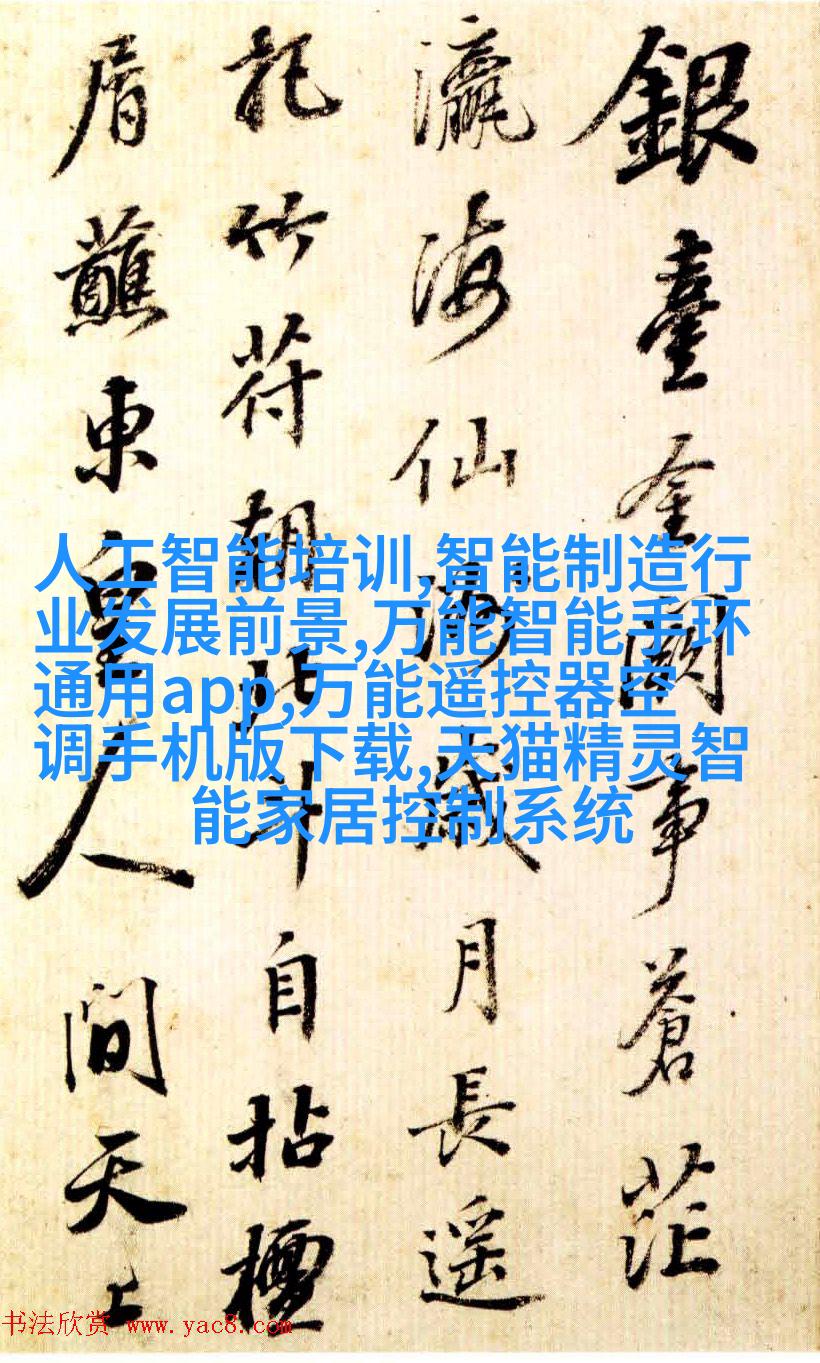 銀臺金闕事蒼茫
瀛海仙歲月長遥
託竹符朝北斗自拈檀
屑蘸東皇人間天上
人工智能培训,智能制造行
业发展前景,万能智能手环
通用app,万能遥控器空
调手机版下载,天猫精灵智
能家居控制系统
书法欣赏 www.yac8.com